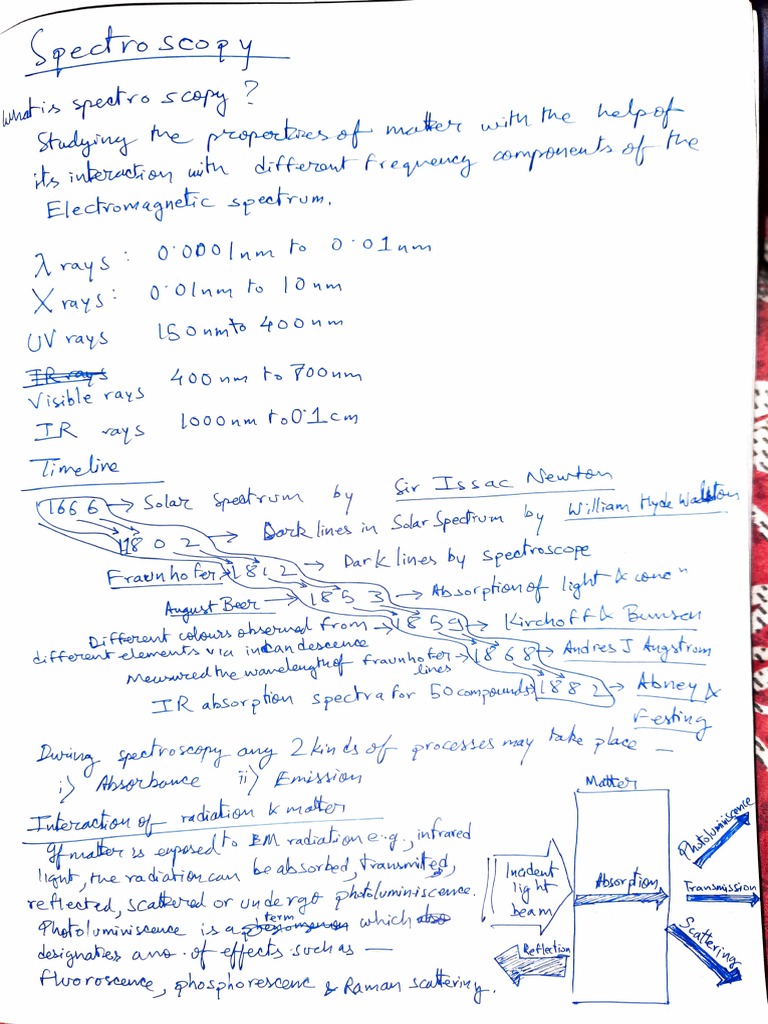 Spectroscopy
What is spectroscopy?
Studying the properties of matter with the help of
its interaction with different frequency components of the
Electromagnetic spectrum.
λ rays : 0.0001nm to 0.01nm
X rays : 0.01nm to 10nm
UV rays 150nm to 400nm
IR rays
Visible rays 400nm to 700nm
IR rays 1000nm to 0.1cm
Timeline
1666 → Solar spectrum by Sir Issac Newton
1802 → Dark lines in Solar Spectrum by William Hyde Wallston
Fraunhofer → 1812 → Dark lines by spectroscope
August Beer → 1853 → Absorption of light & concⁿ
Different colours observed from → 1859 → Kirchoff & Bunsen
different elements via incandescence
Meausured the wavelength of fraunhofer → 1868 → Andres J Angstrom
lines
IR absorption spectra for 50 compounds 1882 → Abney &
Festing
During spectroscopy any 2 kinds of processes may take place —
i) Absorbance ii) Emission
Interaction of radiation & matter
If matter is exposed to EM radiation e.g., infrared
light, the radiation can be absorbed, transmitted,
reflected, scattered or undergo photoluminiscence.
Photoluminiscence is a phenomenon term which also
designaties a no. of effects such as —
fluoroscence, phosphorescenc & Raman scattering.
Matter
Incident
light
beam
Absorption
Reflection
Photoluminiscence
Transmission
Scattering